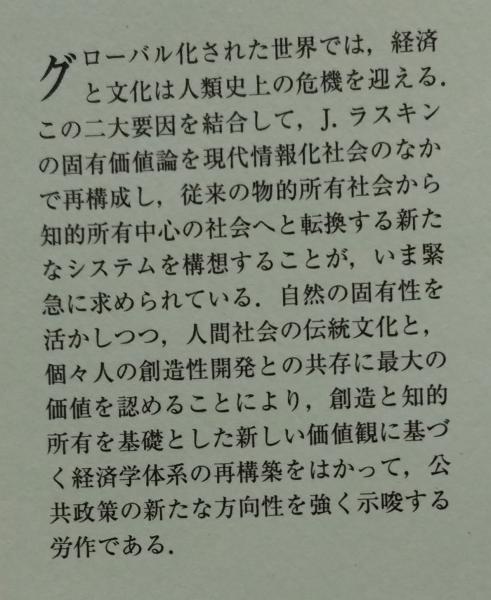 グローバル化された世界では，経済
と文化は人類史上の危機を迎える．
この二大要因を結合して，J. ラスキン
の固有価値論を現代情報化社会のなか
で再構成し，従来の物的所有社会から
知的所有中心の社会へと転換する新た
なシステムを構想することが，いま緊
急に求められている．自然の固有性を
活かしつつ，人間社会の伝統文化と，
個々人の創造性開発との共存に最大の
価値を認めることにより，創造と知的
所有を基礎とした新しい価値観に基づ
く経済学体系の再構築をはかって，公
共政策の新たな方向性を強く示唆する
労作である．